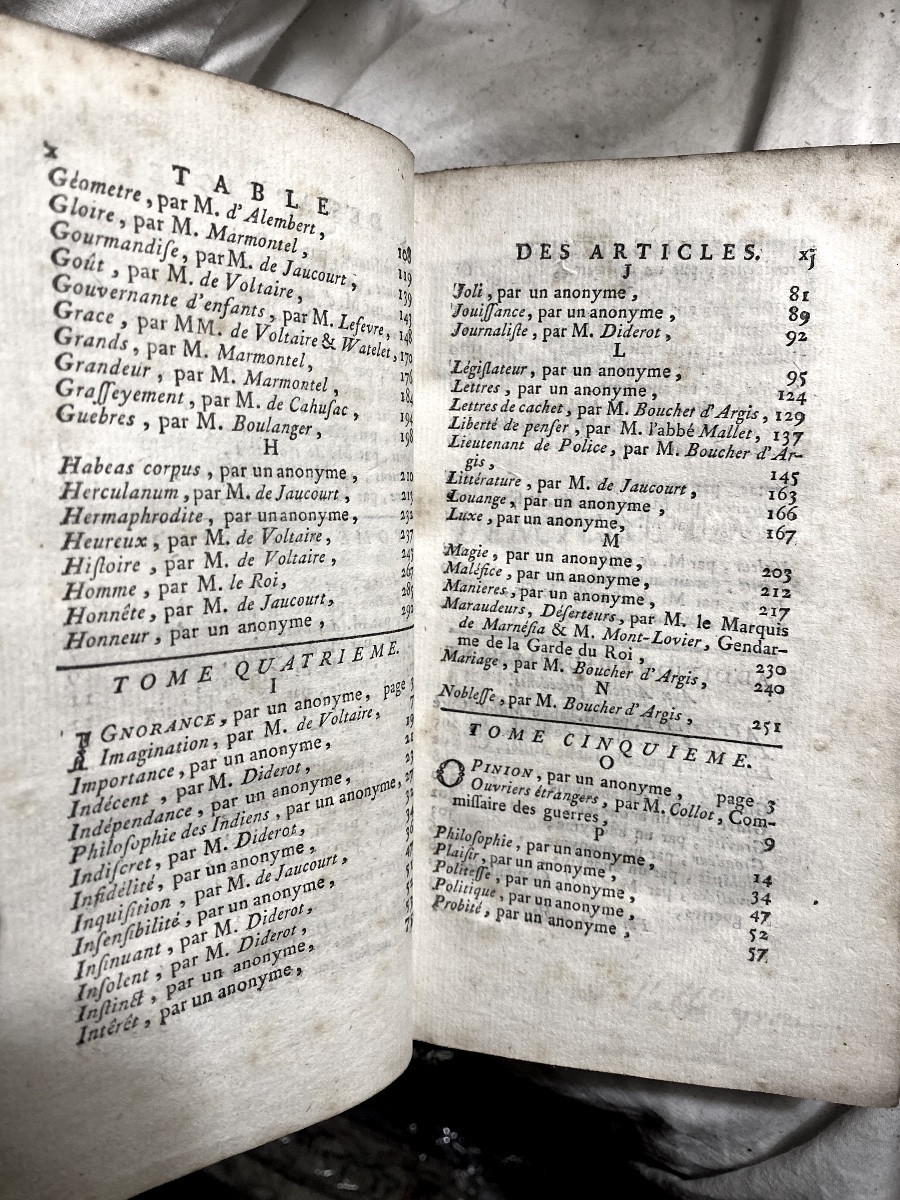 x
TABLE
Géometre, par M. d'Alembert, 108
Gloire, par M. Marmontel, 119
Gourmandiſe, par M. de Jaucourt, 139
Goût, par M. de Voltaire, 143
Gouvernante d'enfants, par M. Lefevre, 148
Grace, par MM. de Voltaire & Watelet, 170
Grands, par M. Marmontel, 176
Grandeur, par M. Marmontel, 184
Graſſeyement, par M. de Cahuſac, 194
Guebres, par M. Boulanger, 198
H
Habeas corpus, par un anonyme, 210
Herculanum, par M. de Jaucourt, 215
Hermaphrodite, par un anonyme, 232
Heureux, par M. de Voltaire, 237
Hiſtoire, par M. de Voltaire, 243
Homme, par M. le Roi, 267
Honnête, par M. de Jaucourt, 285
Honneur, par un anonyme, 292
TOME QUATRIEME.
I
IGNORANCE, par un anonyme, page 3
Imagination, par M. de Voltaire, 7
Importance, par un anonyme, 19
Indécent, par M. Diderot,
Indépendance, par un anonyme, 23
Philoſophie des Indiens, par un anonyme, 27
Indiſcret, par M. Diderot,
Infidélité, par un anonyme,
Inquiſition, par M. de Jaucourt,
Inſenſibilité, par un anonyme,
Inſinuant, par M. Diderot,
Inſolent, par M. Diderot,
Inſtinct, par un anonyme,
Intérêt, par un anonyme,
DES ARTICLES. xj
J
Joli, par un anonyme, 81
Jouiſſance, par un anonyme, 89
Journaliſte, par M. Diderot, 92
L
Légiſlateur, par un anonyme, 95
Lettres, par un anonyme, 124
Lettres de cachet, par M. Bouchet d'Argis, 129
Liberté de penſer, par M. l'abbé Mallet, 137
Lieutenant de Police, par M. Boucher d'Ar-
gis, 145
Littérature, par M. de Jaucourt, 163
Louange, par un anonyme, 166
Luxe, par un anonyme, 167
M
Magie, par un anonyme, 203
Maléfice, par un anonyme, 212
Manieres, par un anonyme, 217
Maraudeurs, Déſerteurs, par M. le Marquis
de Marnéſia & M. Mont-Lovier, Gendar-
me de la Garde du Roi, 230
Mariage, par M. Boucher d'Argis, 240
N
Nobleſſe, par M. Boucher d'Argis, 251
TOME CINQUIEME.
O
OPINION, par un anonyme, page 3
Ouvriers étrangers, par M. Collot, Com-
miſſaire des guerres, 9
P
Philoſophie, par un anonyme, 14
Plaiſir, par un anonyme, 34
Politeſſe, par un anonyme, 47
Politique, par un anonyme, 52
Probité, par un anonyme, 57